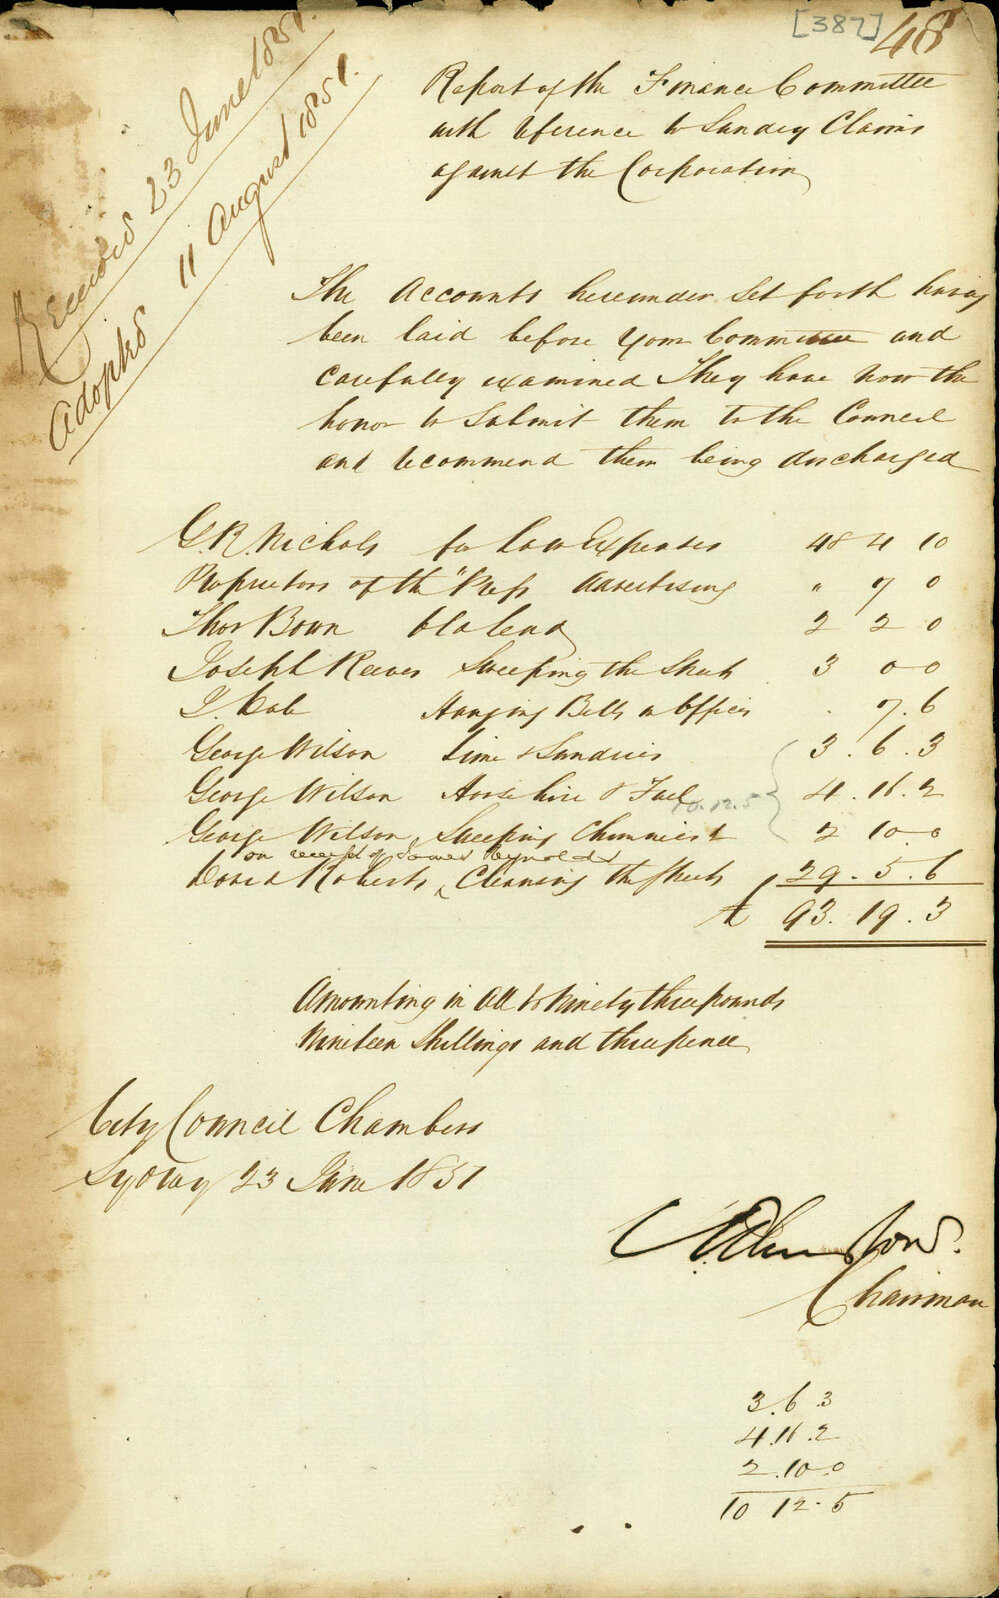 [387] 48
Received 23 June 1851.
Adopted 11 August 1851.
Report of the Finance Committee
with reference to Sundry Claims
against the Corporation
The Accounts hereunder set forth having
been laid before your Committee and
carefully examined They have now the
honor to submit them to the Council
and recommend them being discharged
G. R. Nichols for Law Expenses 48 4 10
Proprietors of the "Press Advertising " 7 0
Thos Bown 2 2 0
Joseph Reeves Sweeping the Streets 3 0 0
Hanging Bells in Offices . 7.6
George Wilson Lime & Sundries 3.6.3
George Wilson Horse hire & Fuel 4.16.2
10.12.5
George Wilson, Sweeping Chimnies & 2 10 0
on receipt of James Reynolds
David Roberts, Cleansing the Streets 29.5.6
£ 93.19.3
Amounting in all to Ninety three pounds
Nineteen Shillings and three pence
City Council Chambers
Sydney 23 June 1851
Chairman
3.6.3
4.16.2
2.10.0
10 12.5